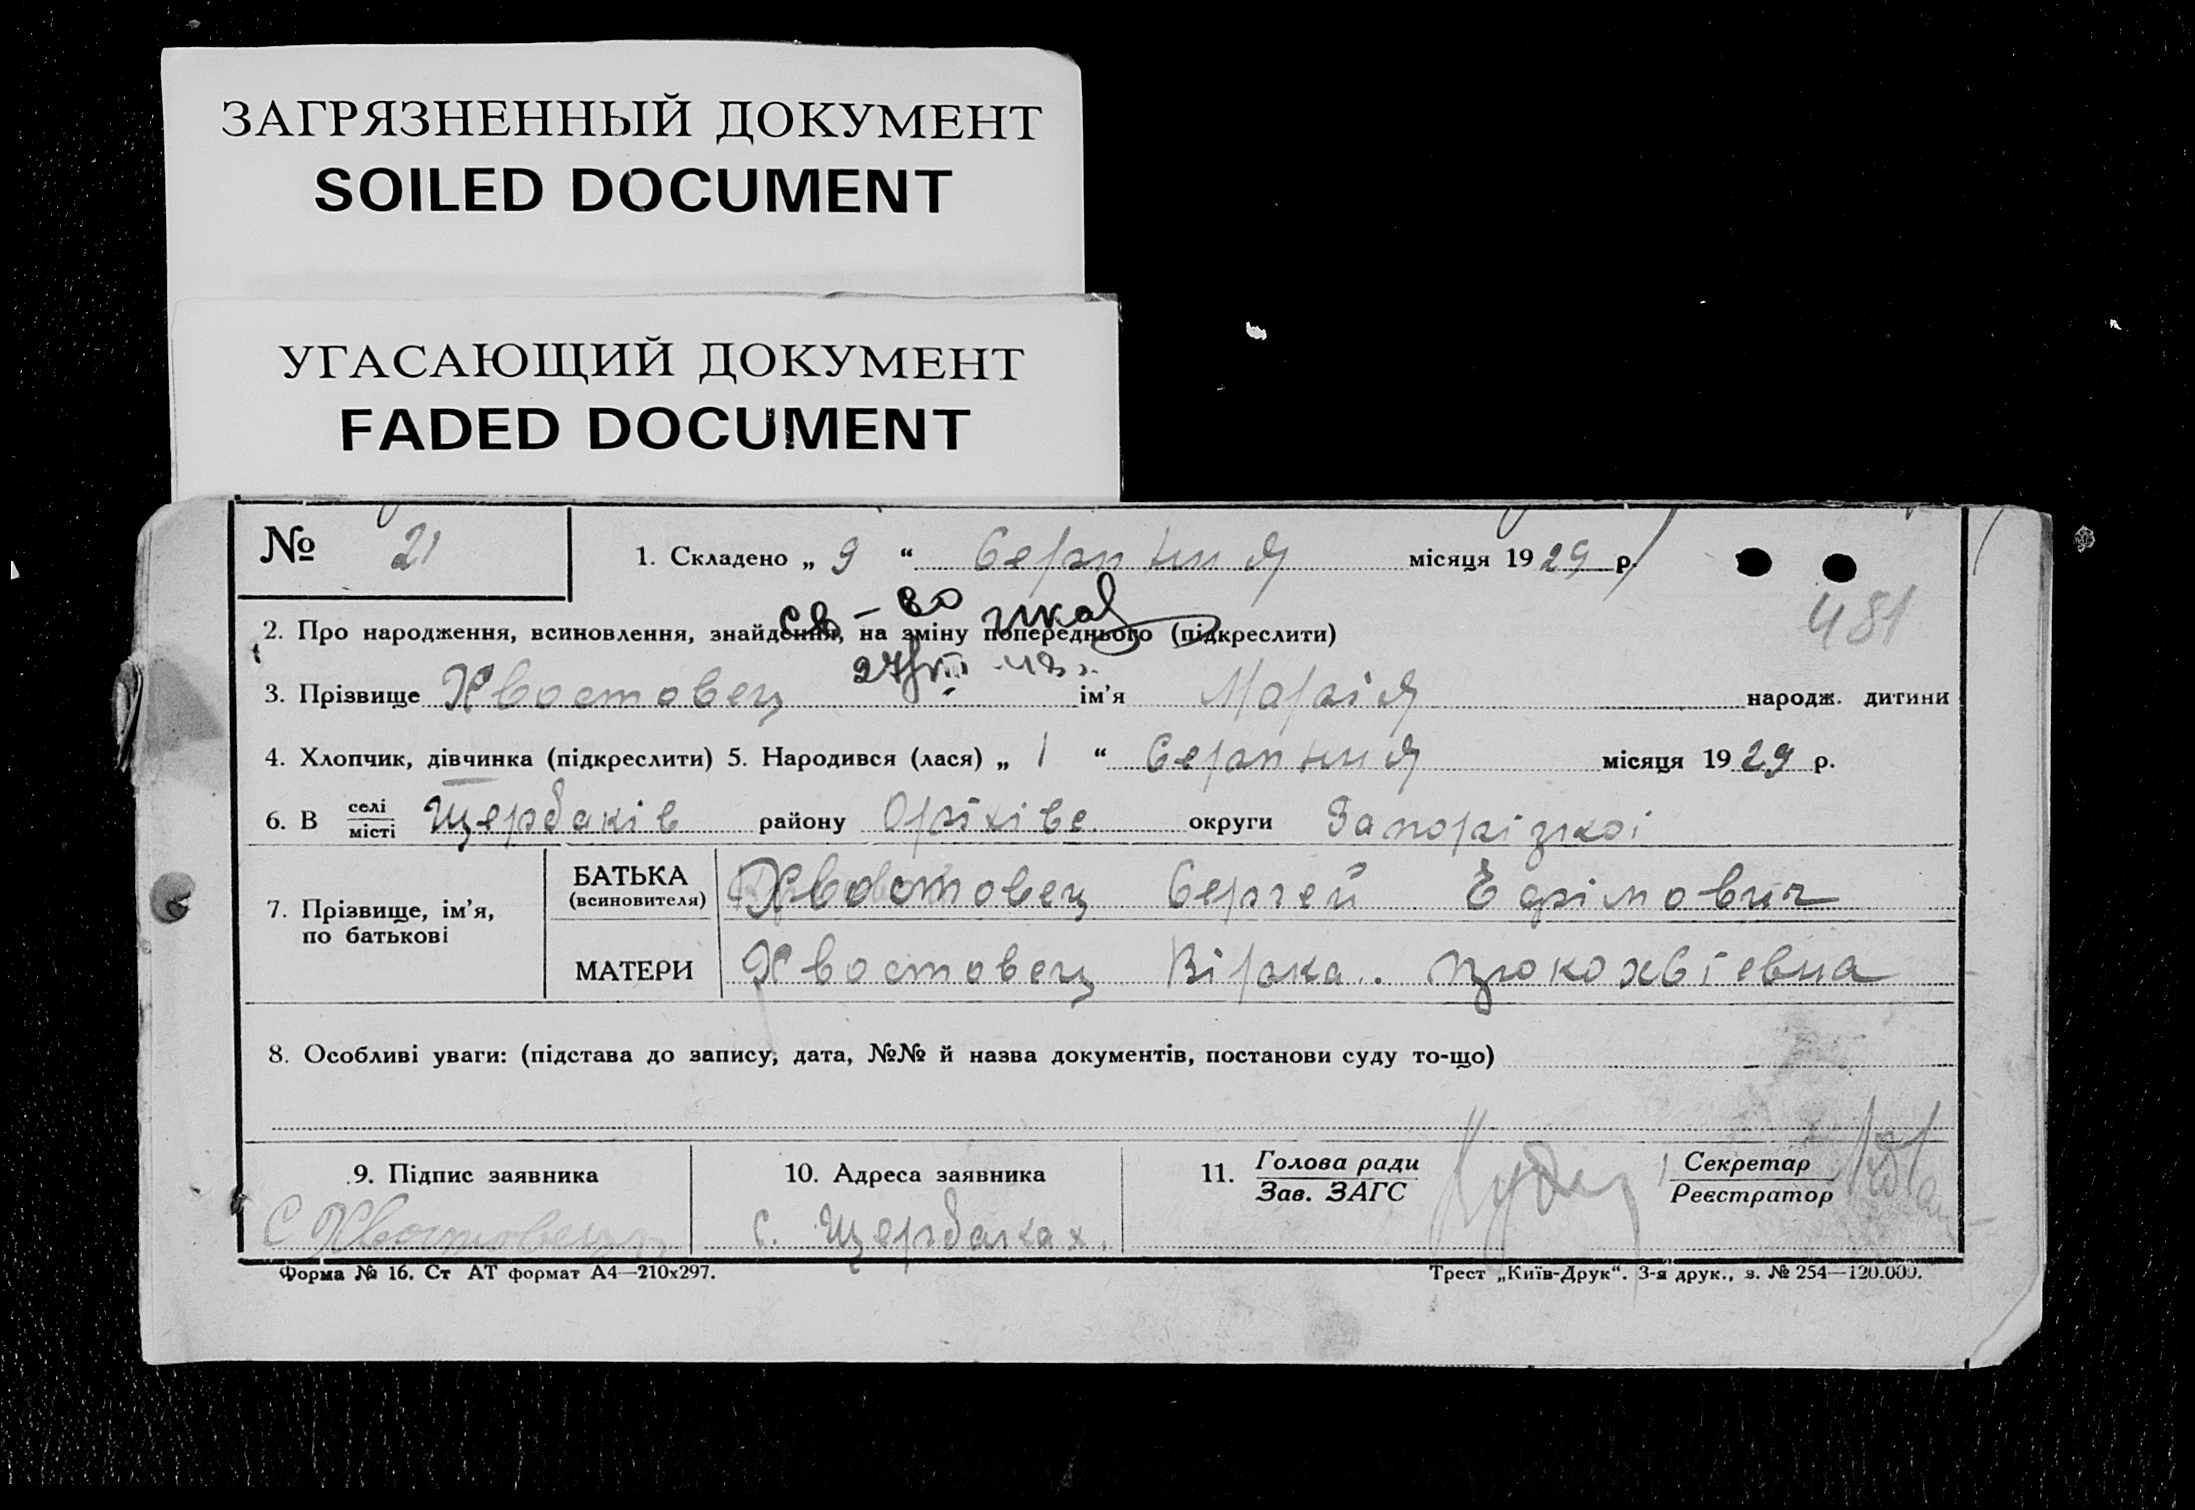 ЗАГРЯЗНЕННЫЙ ДОКУМЕНТ
SOILED DOCUMENT
УГАСАЮЩИЙ ДОКУМЕНТ
FADED DOCUMENT
№ 21
1. Складено „ 9 “ Серпния місяця 1929 р.
св-во
481
2. Про народження, всиновлення, знайдення, на зміну попереднього (підкреслити)
27/VIII-43 г.
3. Прізвище Хвостовец ім’я Марія народж. дитини
4. Хлопчик, дівчинка (підкреслити) 5. Народився (лася) „ 1 “ Серпния місяця 1929 р.
6. В селі місті Щербаків району Оріхівс. округи Запорізкоі
7. Прізвище, ім’я, по батькові
БАТЬКА (всиновителя) Хвостовец Сергей Ефімович
МАТЕРИ Хвостовец Вірка
8. Особливі уваги: (підстава до запису, дата, №№ й назва документів, постанови суду то-що)
9. Підпис заявника
С Хвостовец
10. Адреса заявника
с. Щербаках.
11. Голова ради Зав. ЗАГС
Секретар Реєстратор
Форма № 16. Ст АТ формат А4—210х297.
Трест „Київ-Друк“. 3-я друк., з. № 254—120.000.